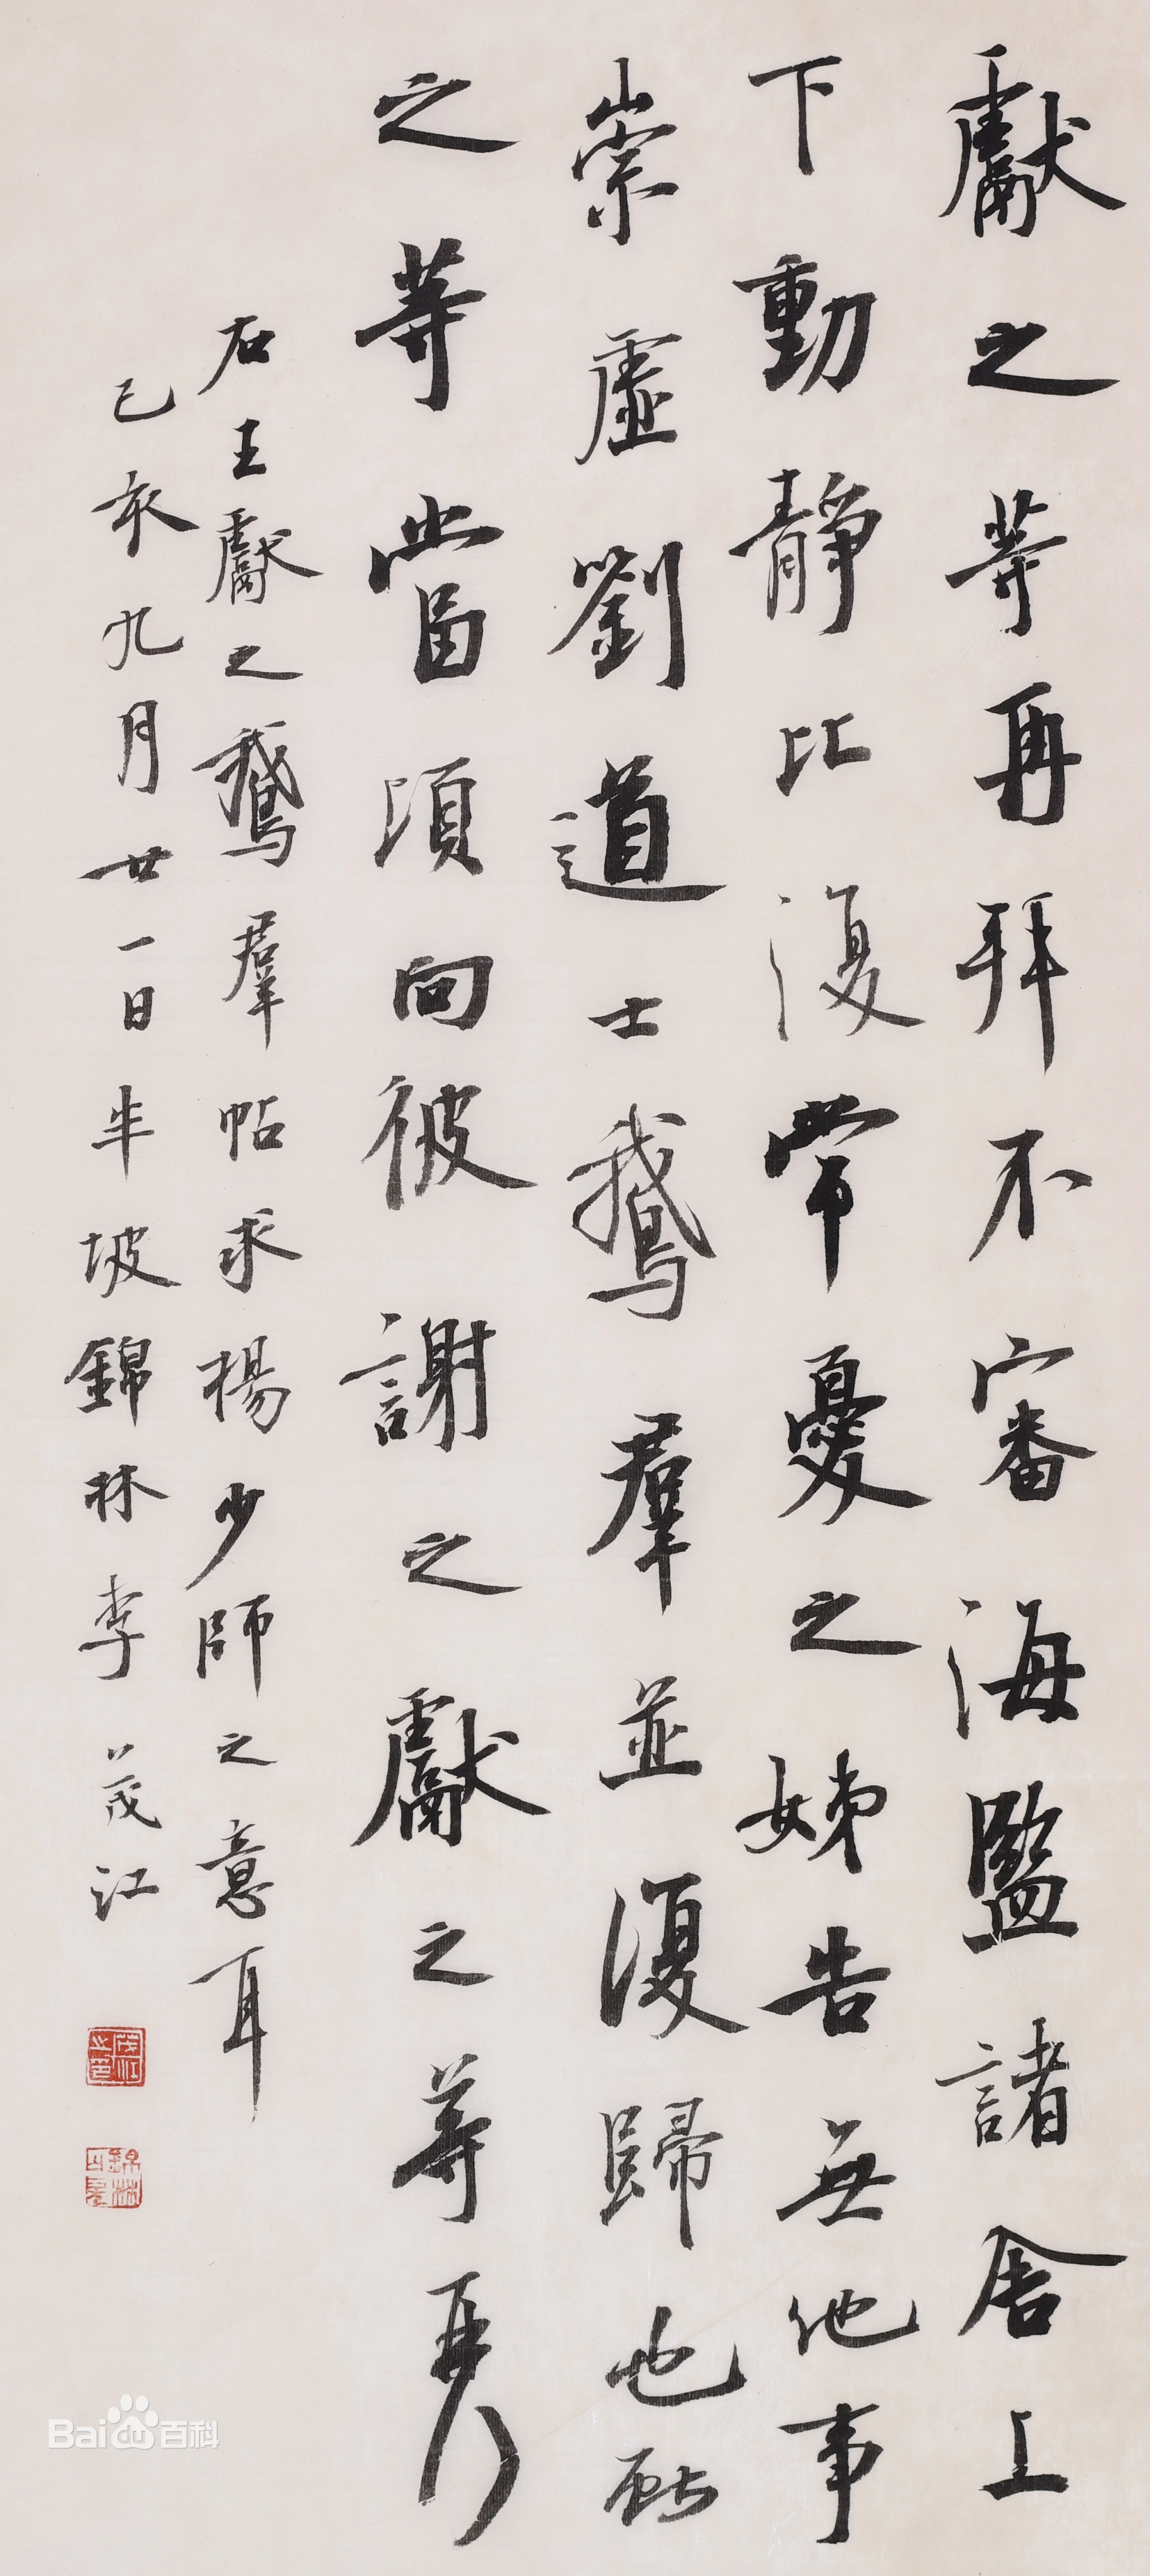 獻之等再拜不審海鹽諸舍上
下動靜比復常憂之姊告無他事
崇虛劉道士鵝羣並復歸也獻
之等當須向彼謝之獻之等再拜
右王獻之鵝羣帖求楊少師之意耳
己亥九月廿一日半坡錦林李茂江
茂江之印
Baidu百科